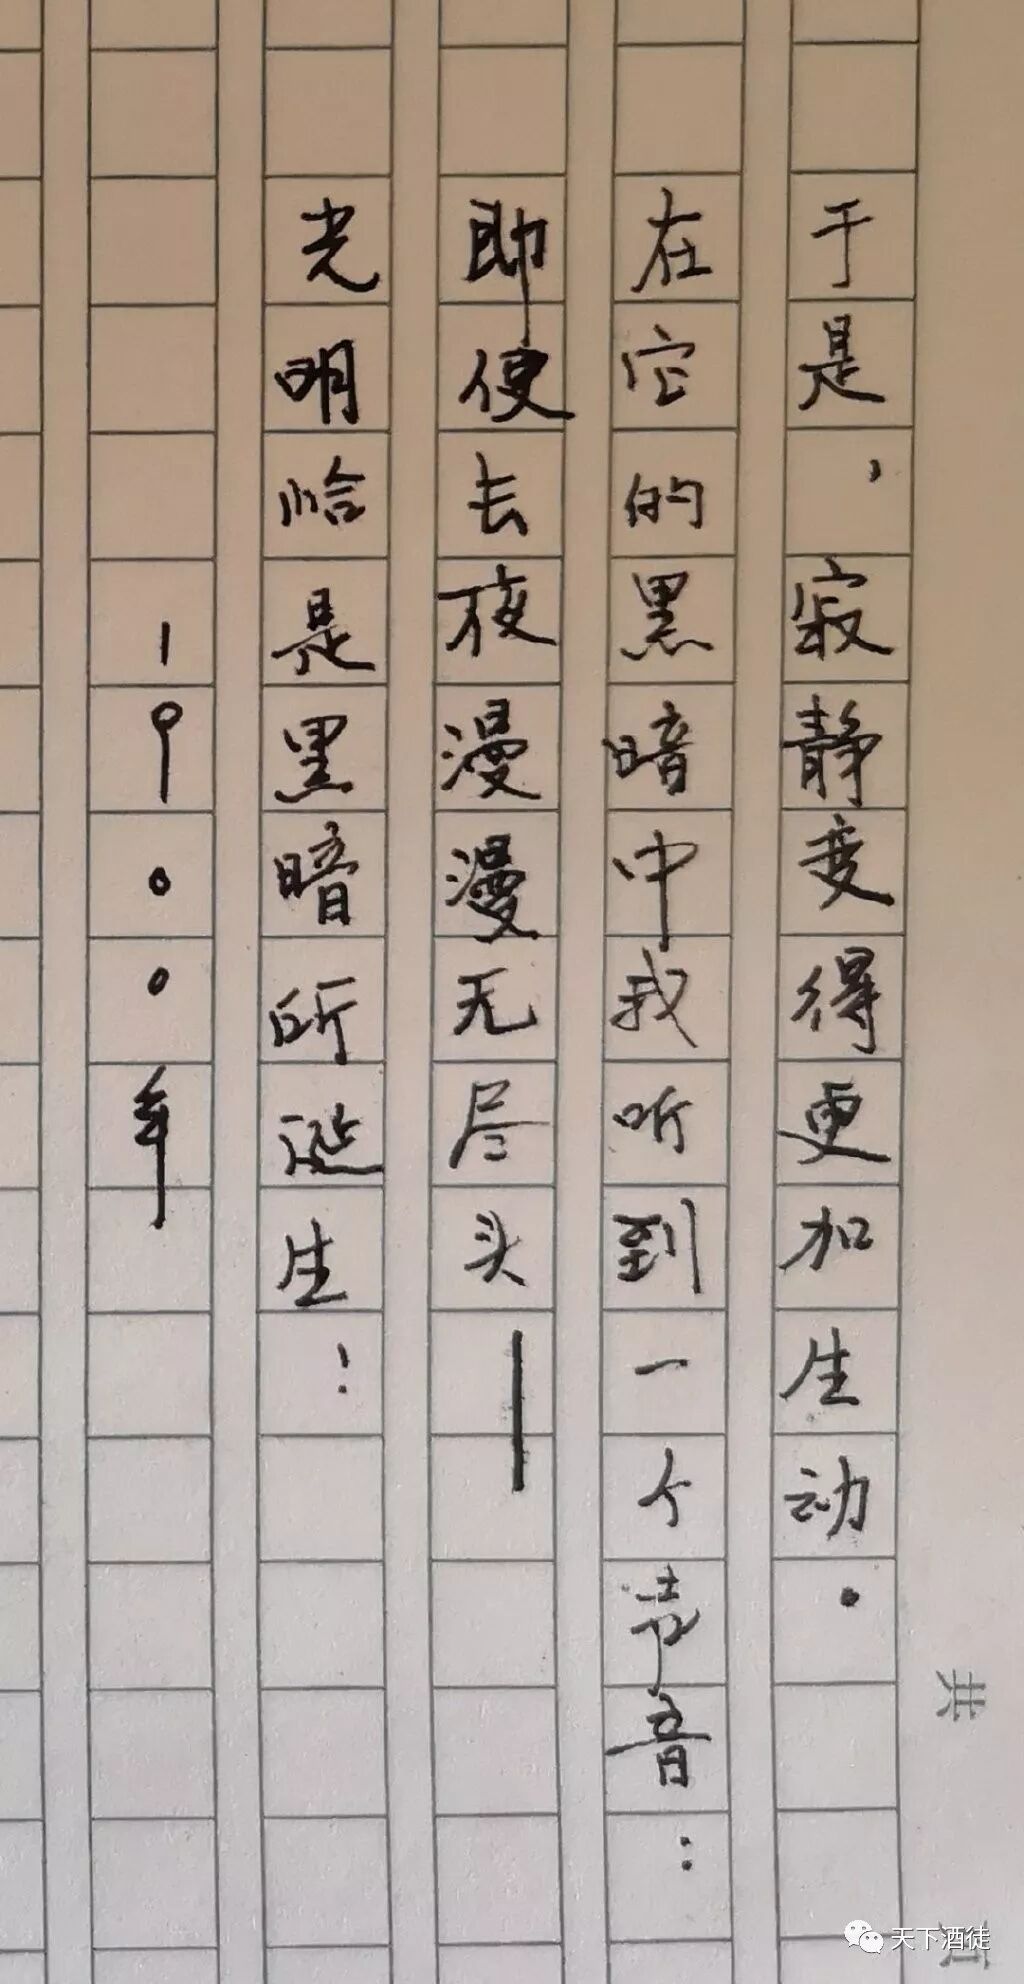 于是，寂静变得更加生动。
在它的黑暗中我听到一个声音：
即便长夜漫漫无尽头——
光明恰是黑暗所诞生！
一九〇〇年
共
页
天下酒徒